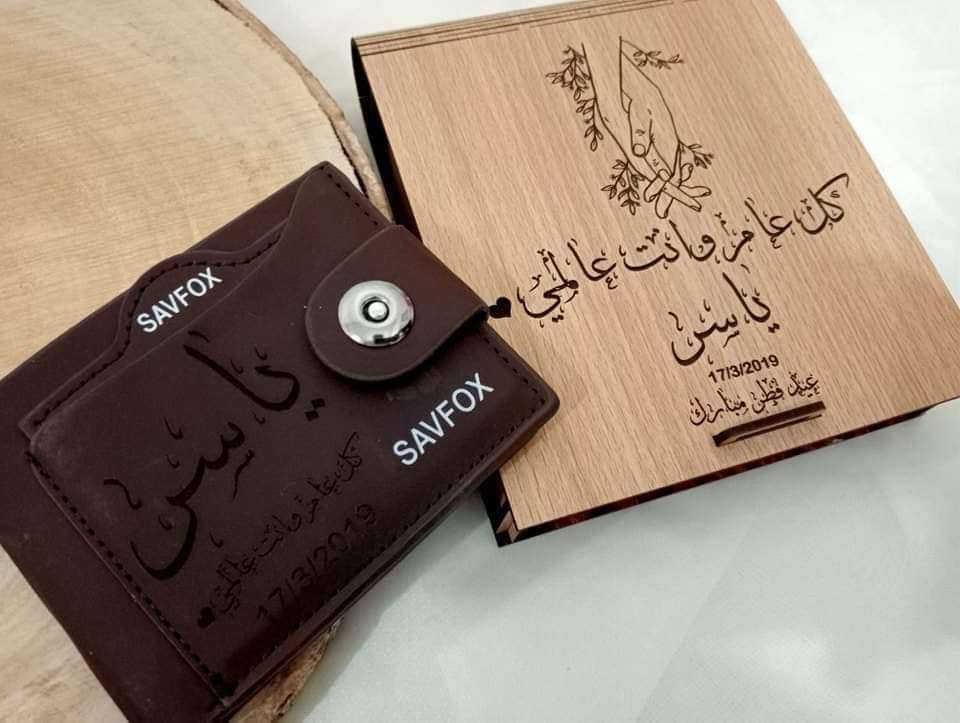 SAVFOX
SAVFOX
ياسر
كل عام وانت عالمي
17/3/2019
كل عام وانت عالمي
ياسر
17/3/2019
عيد فطر مبارك